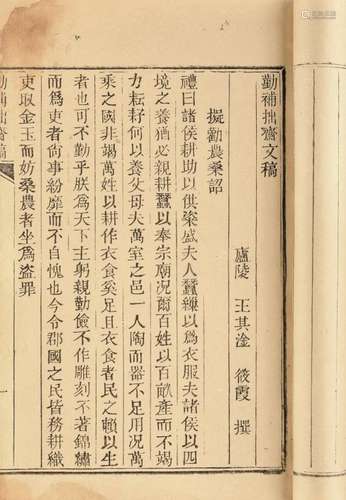 勤補拙齋文稿
廬陵 王其淦 筱霞 撰
擬勸農桑詔
禮曰諸侯耕助以供粢盛夫人蠶繅以爲衣服夫諸侯以四
境之養猶必親耕蠶以奉宗廟况爾百姓以百畝產而不竭
力耘耔何以養父母夫萬室之邑一人陶而器不足用况萬
乘之國非竭萬姓以耕作衣食奚足且衣食者民之賴以生
者也可不勤乎朕爲天下主躬親勤儉不作雕刻不著錦繡
而爲吏者尙事紛靡而不自愧也今令郡國之民皆務耕織
吏取金玉而妨桑農者坐爲盜罪
勤補拙齋稿